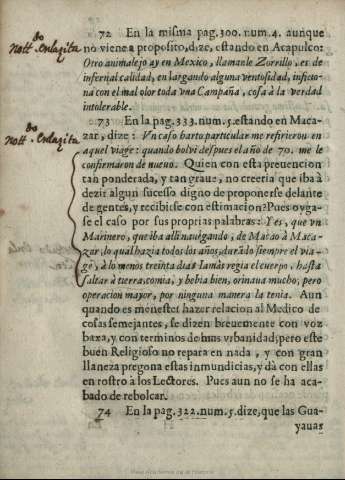 72 En la misma pag. 300. num. 4. aunque
no viene a proposito, dize, estando en Acapulco:
Otro animalejo ay en Mexico, llamanle Zorrillo, es de
infernal calidad, en largando alguna ventosidad, inficio-
na con el mal olor toda vna Campaña, cosa à la verdad
intolerable.
73 En la pag. 333. num. 5. estando en Maca-
zar, dize: Vn caso harto particular me refirieron en
aquel viage: quando bolvi despues el año de 70. me le
confirmaron de nuevo. Quien con esta preuencion
tan ponderada, y tan graue, no creeria que iba à
dezir algun sucesso digno de proponerse delante
de gentes, y recibirse con estimacion? Pues oyga-
se el caso por sus proprias palabras: Yes, que vn
Marinero, que iba alli nauegando, de Macao à Maca-
zar, lo qual hazia todos los años, durãdo siempre el via-
ge, à lo menos treinta dias Iamàs regia el cuerpo, hasta
saltar à tierra, comia, y bebia bien, orinaua mucho; pero
operacion mayor, por ninguna manera la tenia. Aun
quando es menester hazer relacion al Medico de
cosas semejantes, se dizen brevemente con voz
baxa, y con terminos de mas vrbanidad; pero este
buen Religioso no repara en nada, y con gran
llaneza pregona estas inmundicias, y dà con ellas
en rostro à los Lectores. Pues aun no se ha aca-
bado de rebolcar.
74 En la pag. 322. num. 5. dize, que las Gua-
yauas